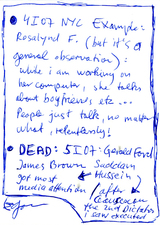 4I07 NYC Example:
Rosalynd F. (but it's a
general observation):
while i am working on
her computer, she talks
about boyfriends, etc ...
People just talk, no matter
what, relentlessly!
DEAD: 5I07: Gerald Ford
James Brown Suddam
got most Hussein
media attention (after
the 2nd Dictator
i saw executed